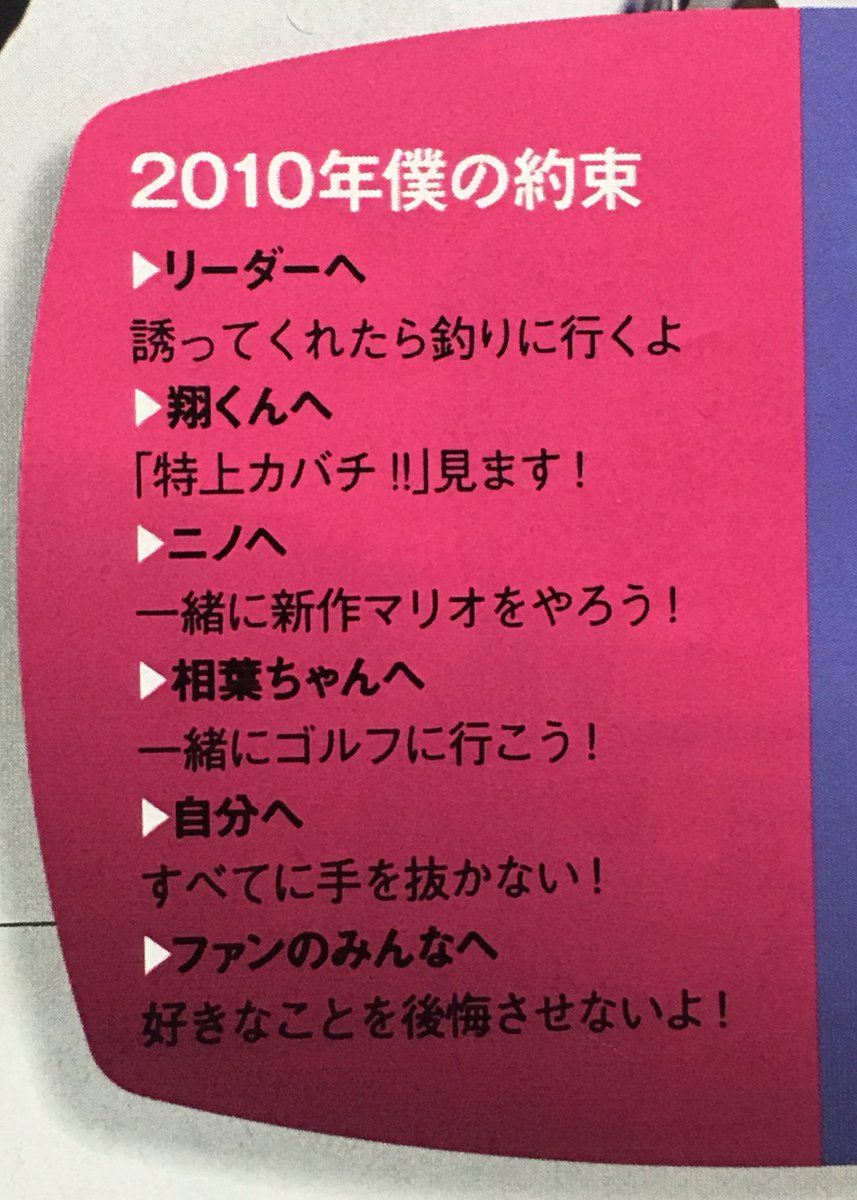 2010年僕の約束
▶リーダーへ
誘ってくれたら釣りに行くよ
▶翔くんへ
「特上カバチ!!」見ます!
▶ニノへ
一緒に新作マリオをやろう!
▶相葉ちゃんへ
一緒にゴルフに行こう!
▶自分へ
すべてに手を抜かない!
▶ファンのみんなへ
好きなことを後悔させないよ!